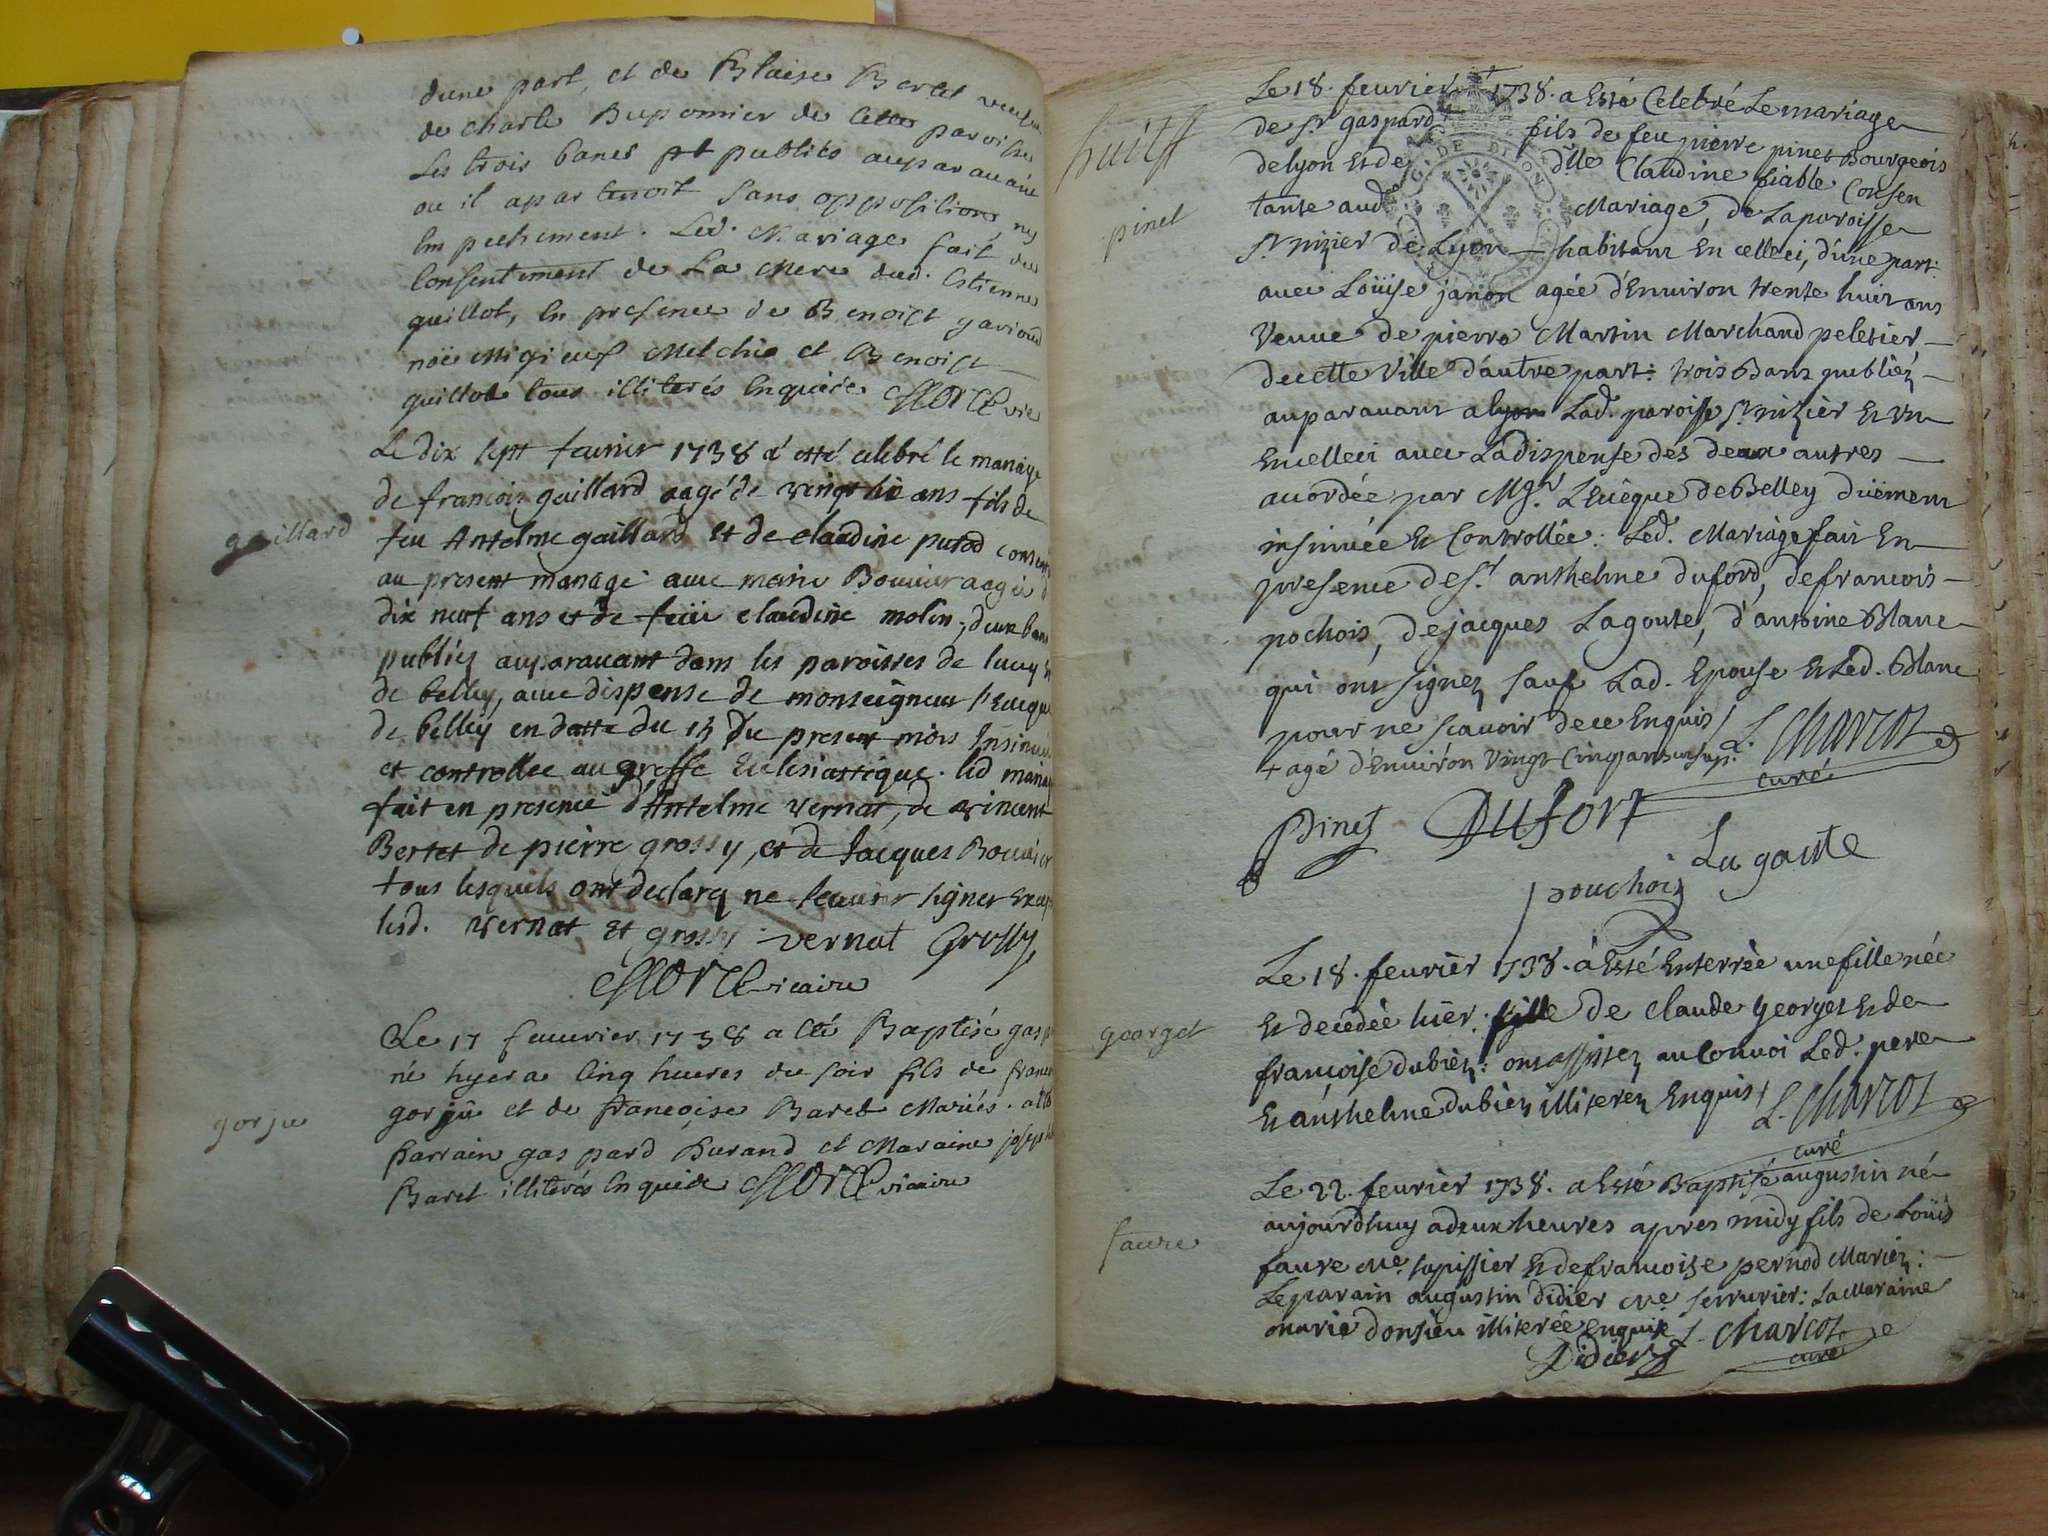 dune part, et de Blaise Bertet veufue
de Charle Buponier de Cette paroisse
Les trois bancs publiés auparauant
ou il apartenoit sans oppositions ny
Empechement. Led. Mariage fait du
Consentement de La Mere dud. Estienne
guillot, En presence de Benoist gavioud
noë Migieuf Melchio et Benoist
guillot tous illiterés Enquéis Morel vic
Le dix sept feurier 1738 a etté celebré le mariage
gaillard
de francois gaillard aagé de vingt six ans fils de
feu Antelme gaillard et de claudine putod
au present mariage auec marie Bouuier aagée d
dix neuf ans et de feüe claudine molin, deux bans
publiez auparauant dans les paroisses de lucey et
de belley, auec dispense de monseigneur l'Eueque
de belley en datte du 15 du present mois Insinuée
et controllee au greffe Eclesiastique. led mariage
fait en presence d'Antelme vernat, de vincent
Bertet de pierre grossy, et de Jacques Bouuier
tous lesquels ont declarez ne scauoir signer Except
lesd. vernat et grossy. vernat Grossy
Morel vicaire
Le 17 feuurier 1738 a eté Baptisé gaspard
né hyer a Cinq heures du soir fils de francois
gorju
gorju et de françoise Baret Mariés. a eté
Parrain gaspard Durand et Maraine josephte
Baret illiterés Enquéis Morel vicaire
huit
Le 18. feurier 1738. a Esté Celebré Le mariage
de Sr. gaspard + fils de feu pierre pinet Bourgeois
pinet
de Lyon Et de dlle Claudine fiable Consen
tante aud Mariage, de La paroisse
St. nizier de Lyon habitant En celleci, d'une part:
auec Loüise janon agée d'Enuiron trente huit ans
Veuue de pierre Martin Marchand peletier
de cette Ville d'autre part: trois Bans publiéz
auparauant a Lyon Lad. paroisse St. nizier Et Un
En celleci auec La dispense des deux autres
acordée par Mgr. L'Euêque de Belley düement
insinuée Et Controllée: Led. Mariage fait En
presence de Sr. anthelme duford, de francois
pochois, de jacques Lagoute, d'antoine Blanc
qui ont signez sauf Lad. Epouse Et Led. Blanc
pour ne scauoir de ce Enquis / L. Charcot
+ agé d'Enuiron Vingt Cinq ans curé
Pinet DUfort
La goute
pouchoiz
Le 18. feurier 1738. a Esté Enterrée une fille née
Et decédée hier: fille de Claude Georget Et de
georget
françoise dubiez: ont assistez au Conuoi Led. pere
Et anthelme dubiez illiterez Enquis / L. Charcot
curé
Le 22. feurier 1738. a Esté Baptisé augustin né
aujourdhuy a deux heures apres midy fils de Loüis
faure
faure Me. tapissier Et de francoise pernod Mariéz:
Le parain augustin Didier Me. serrurier: La Maraine
marie donsieu illiterée Enquise L. Charcot
Didier curé